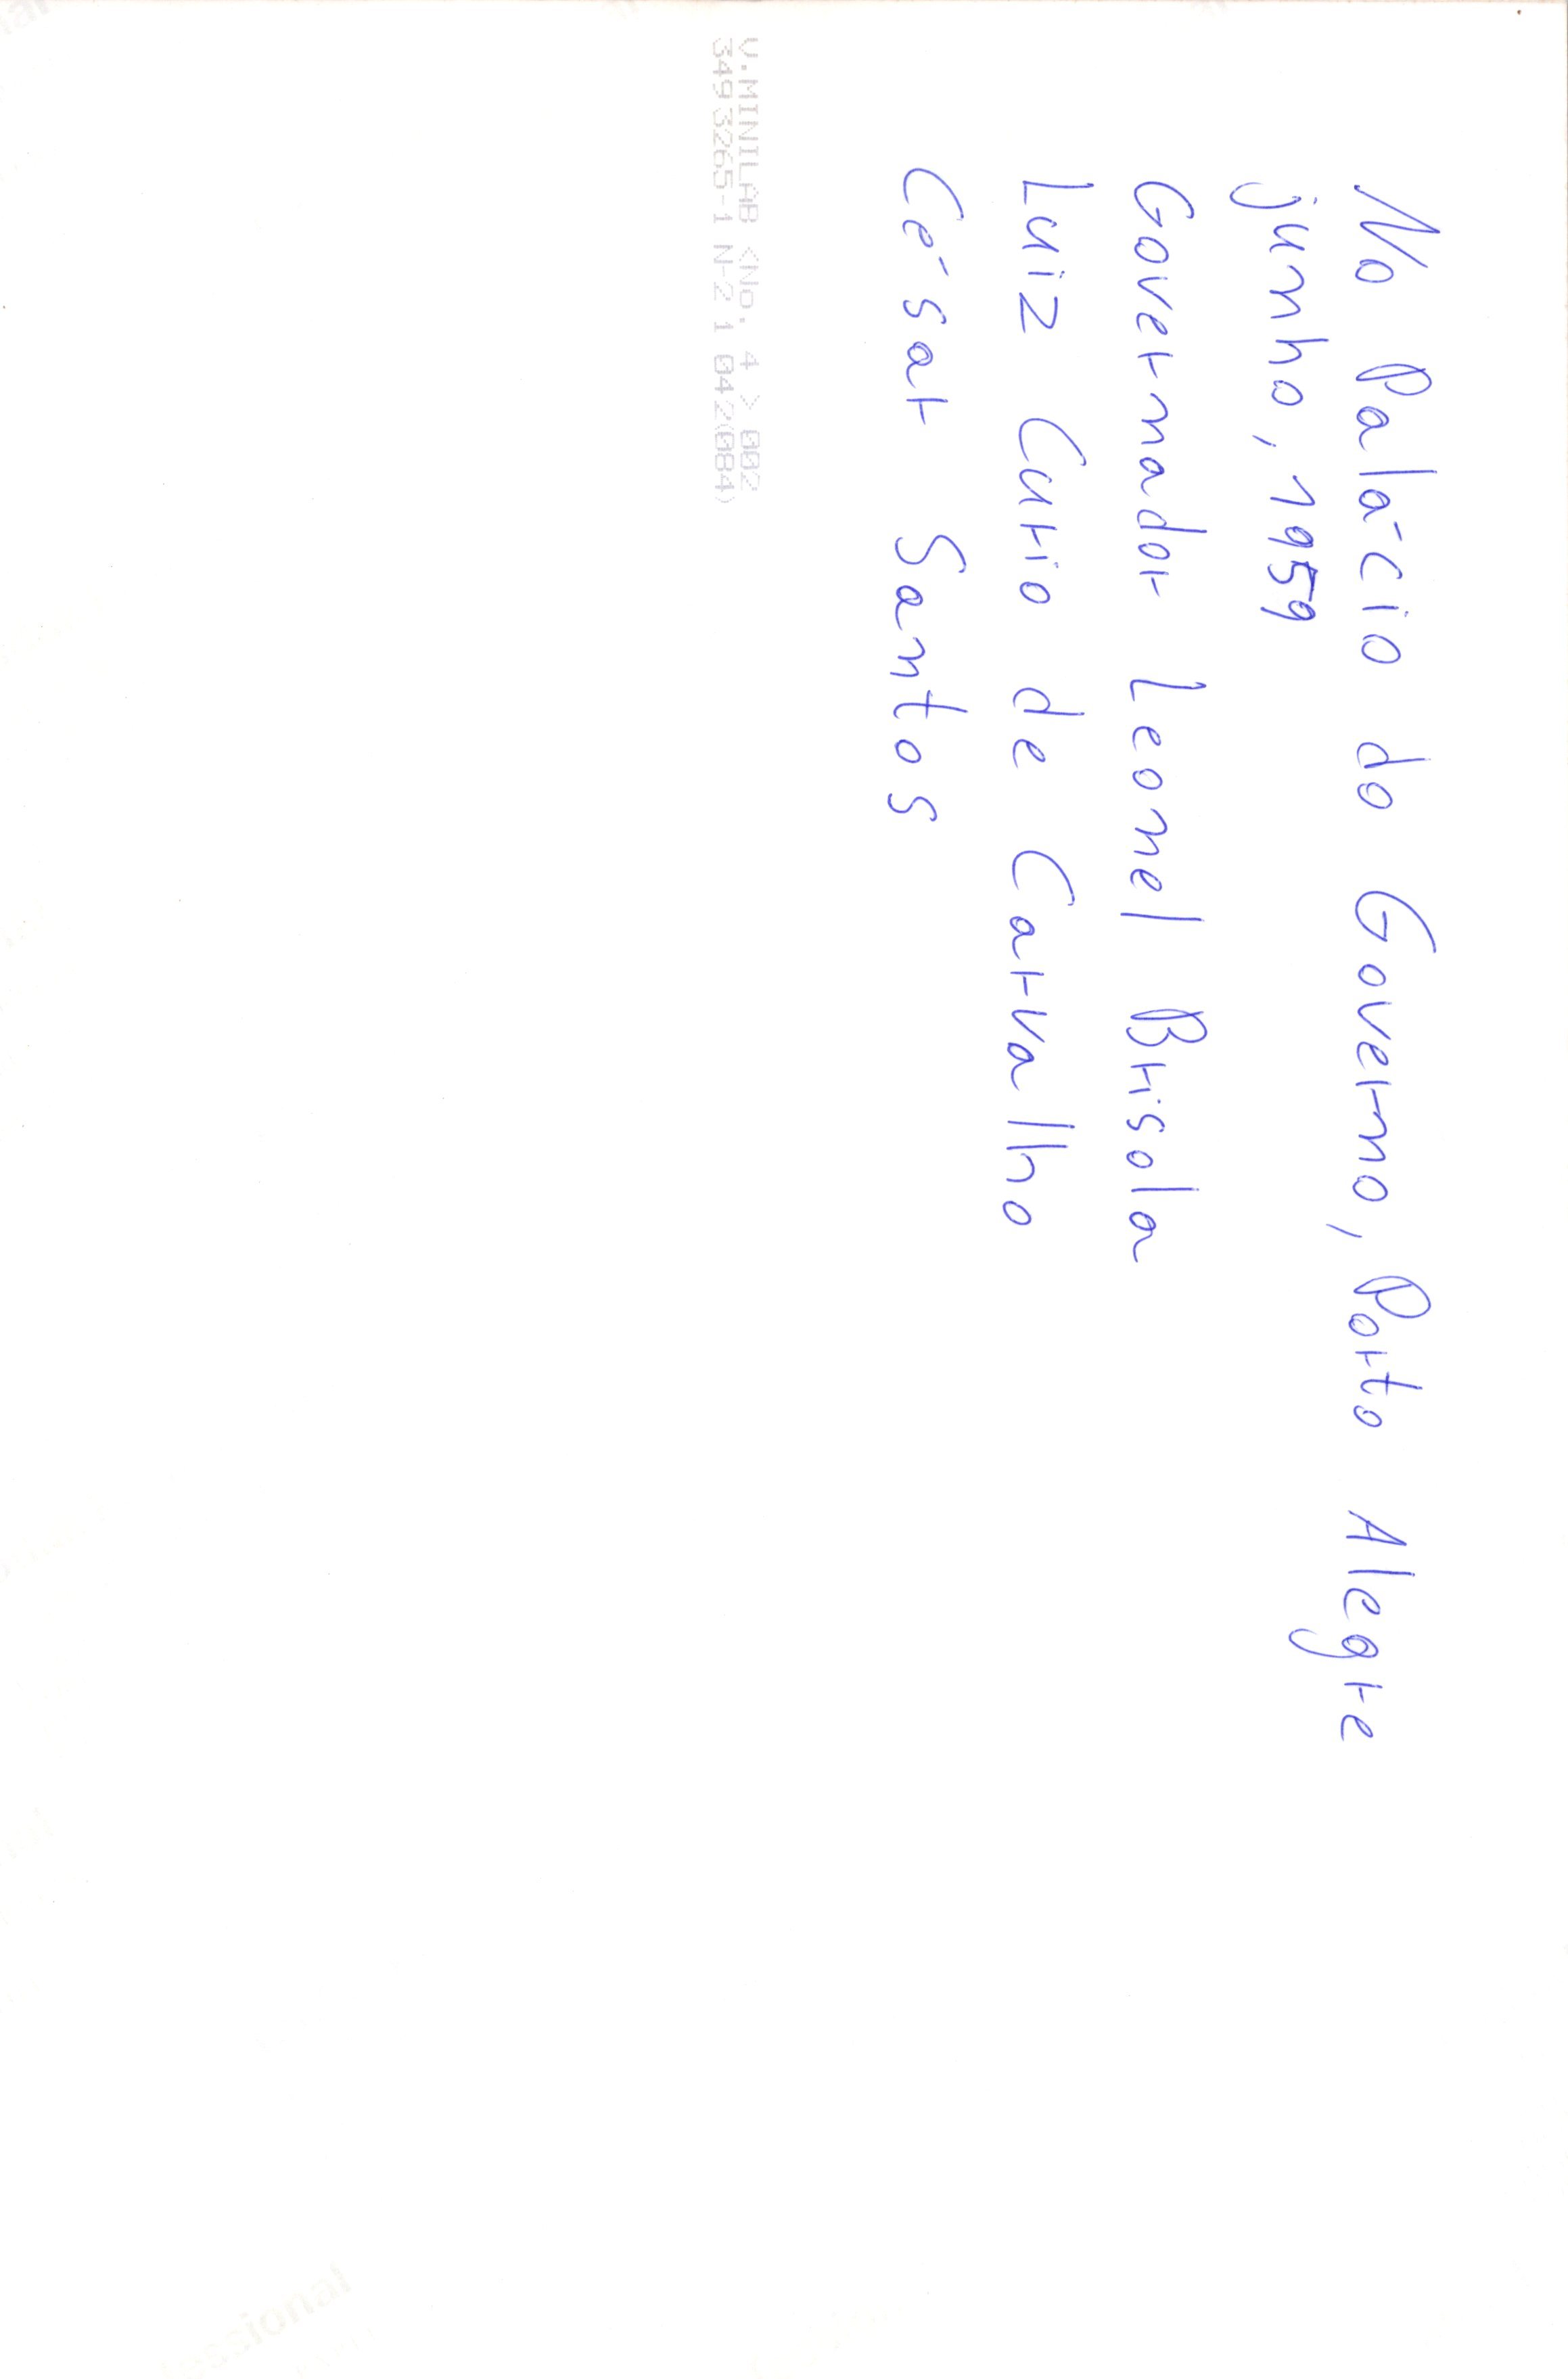 No Palácio do Governo, Porto Alegre
junho, 1959
Governador Leonel Brisola
Luiz Curio de Carvalho
César Santos
V.MINILAB <No. 4 > 002
349 3265-1 N-2 1 042(084)